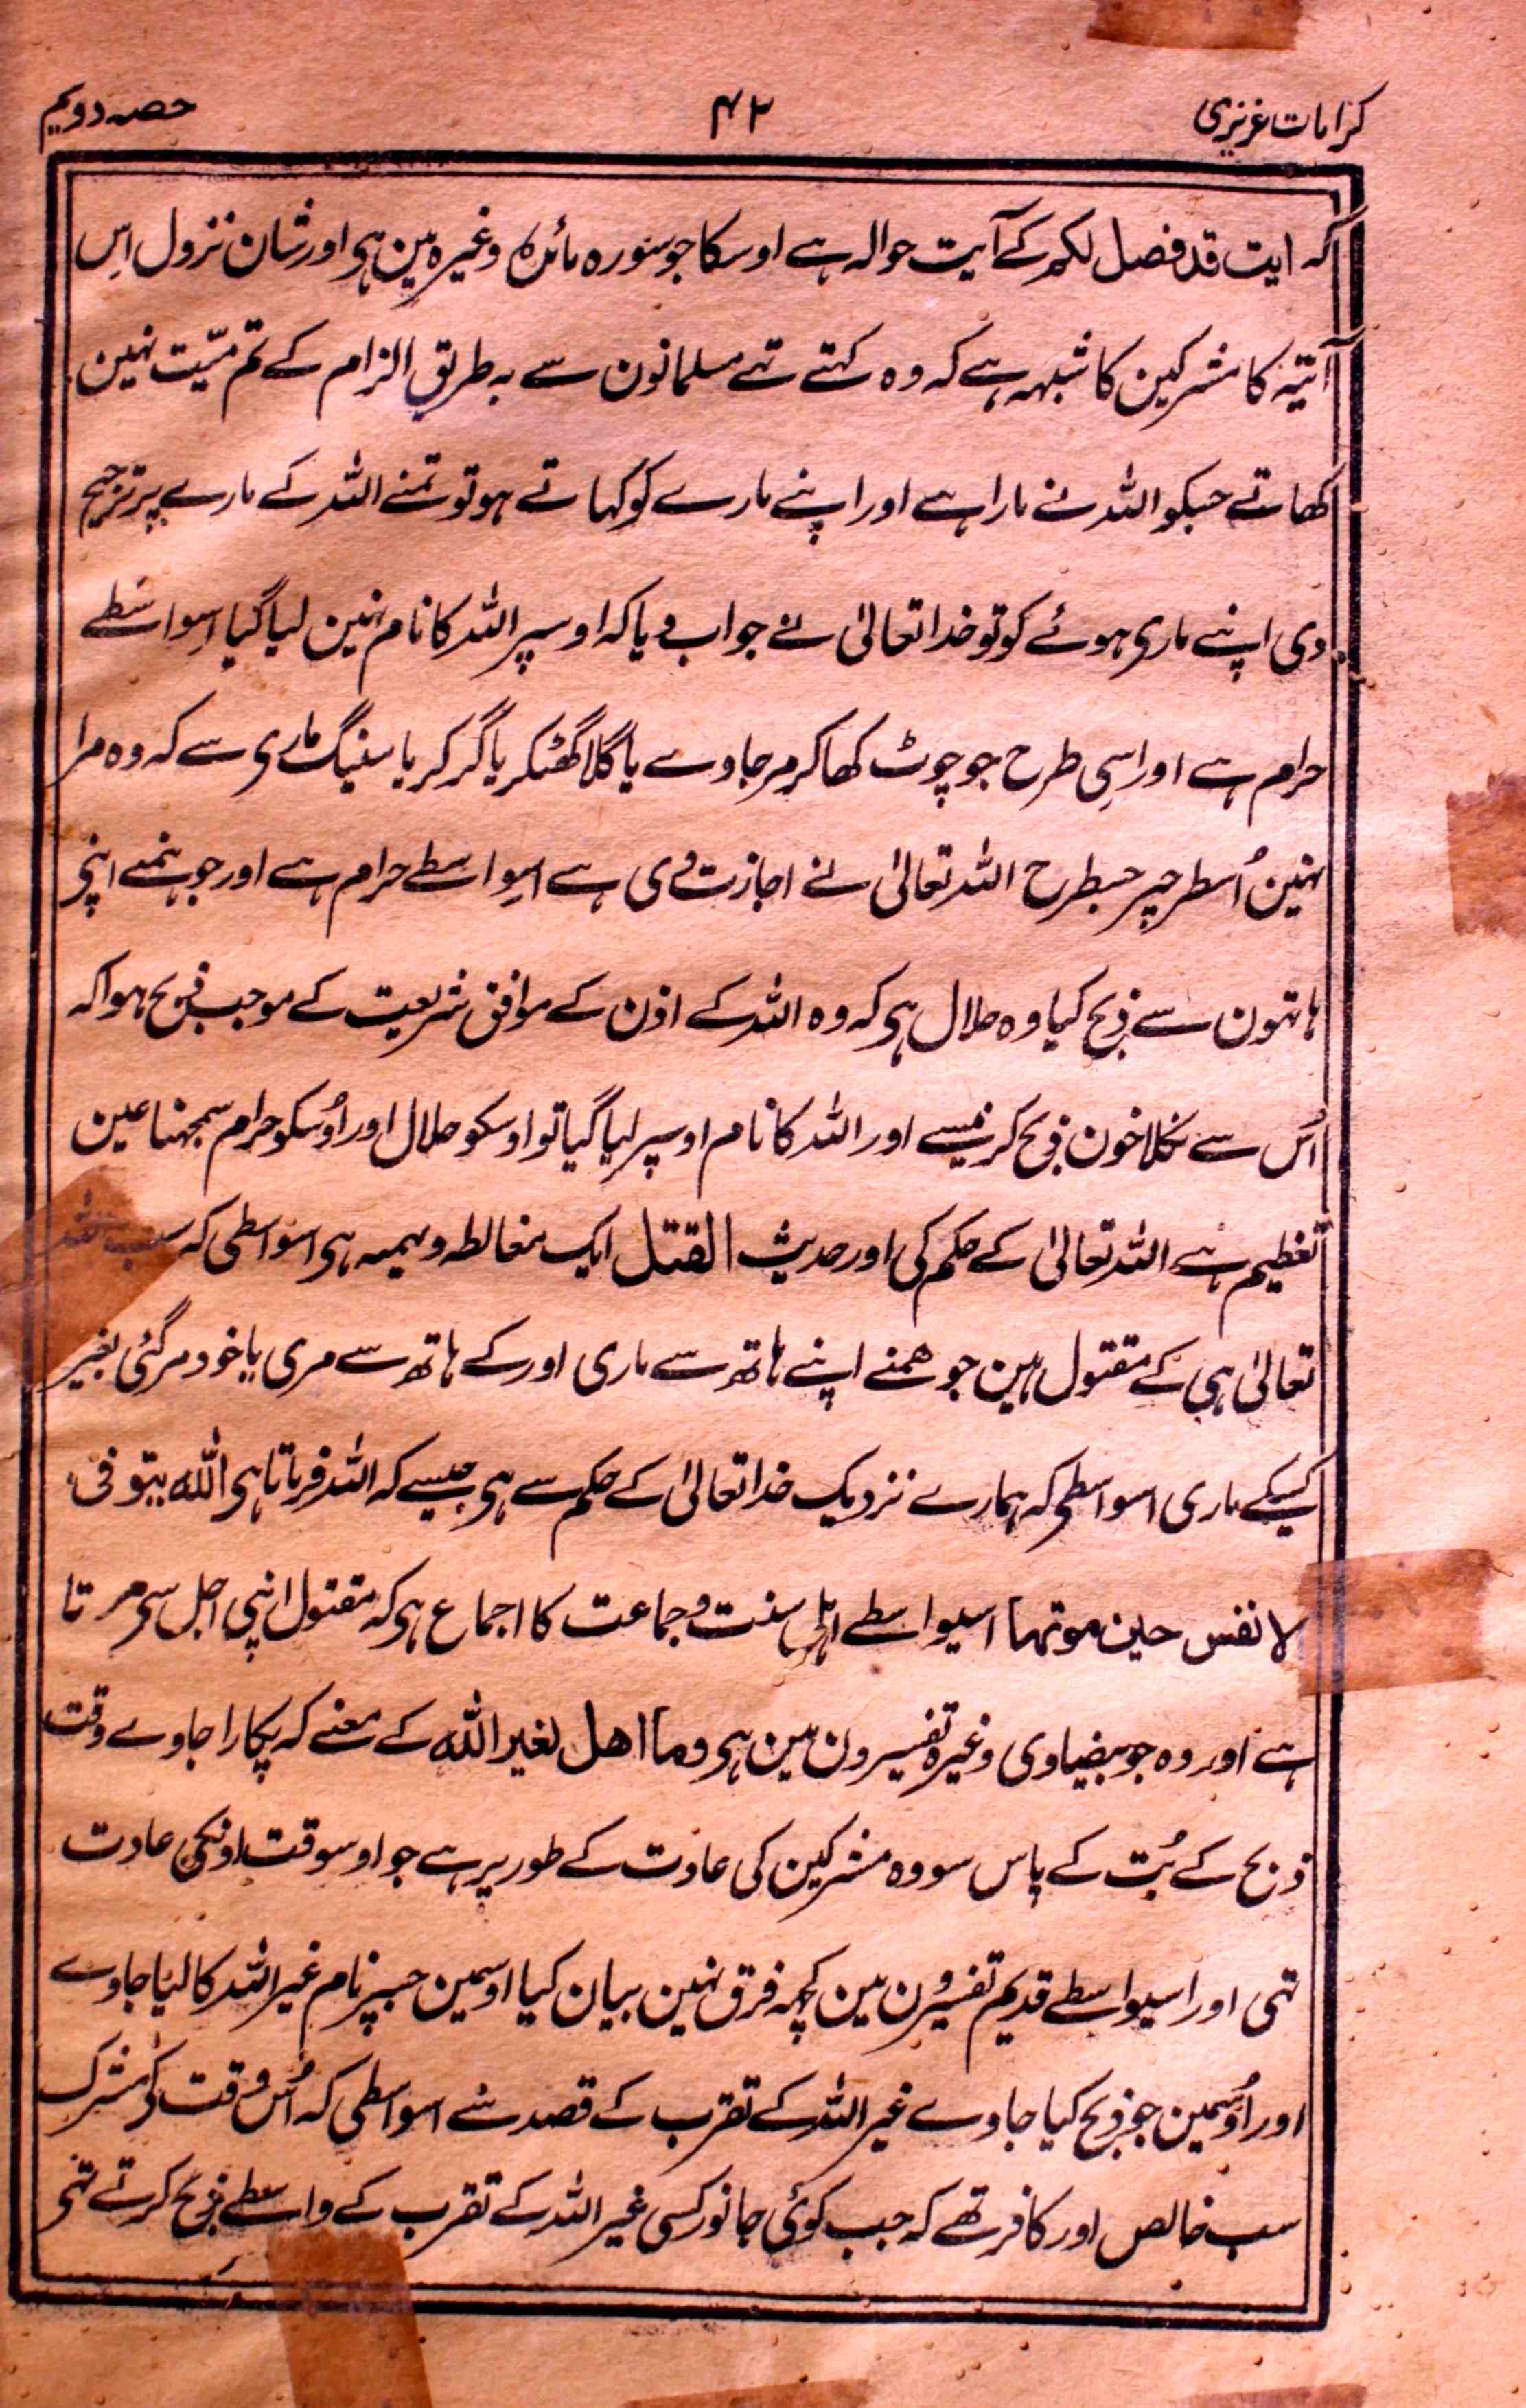 کرامات عزیزی ۴۲ حصہ دویم
کہ ایت قد فصل لکم کے آیت حوالہ ہے اوسکا جو سورہ مائدہ وغیرہ مین ہی اور شان نزول اِس
آیتہ کا مشرکین کا شبہہ ہے کہ وہ کہتے تہے مسلمانون سے بہ طریق الزام کے تم میّت نہین
کھاتے جسکو اللہ نے مارا ہے اور اپنے مارے کو کہاتے ہو تو تمنے اللہ کے مارے پر ترجیح
دی اپنے ماری ہوئے کو تو خدا تعالیٰ نے جواب دیا کہ اوسپر اللہ کا نام نہین لیا گیا اسواسطے
حرام ہے اور اسی طرح جو چوٹ کھا کر مر جاوے یا گلا گھٹکر یا گر کر یا سینگ ماری سے کہ وہ مرا
نہین اُسطرحپر جسطرح اللہ تعالیٰ نے اجازت دی ہے اسواسطے حرام ہے اور جو ہمنے اپنی
ہاتہون سے ذبح کیا وہ حلال ہی کہ وہ اللہ کے اذن کے موافق شریعت کے موجب ذبح ہوا کہ
اُس سے نکلا خون ذبح کرنیسے اور اللہ کا نام اوسپر لیا گیا تو اوسکو حلال اور اُوسکو حرام سمجہنا عین
تعظیم ہے اللہ تعالیٰ کے حکم کی اور حدیث القتل ایک مغالطہ وہمیہ ہی اسواسطی کہ سب اللہ
تعالیٰ ہی کے مقتول ہین جو ہمنے اپنے ہاتھ سے ماری اور کے ہاتھ سے مری یا خود مر گئی بغیر
کسیکے ماری اسواسطی کہ ہمارے نزدیک خدا تعالیٰ کے حکم سے ہی جیسے کہ اللہ فرماتا ہی اللہ یتوفی
لانفس حین موتہا اسیواسطے اہل سنت و جماعت کا اجماع ہی کہ مقتول اپنی اجل سی مرتا
ہے اور وہ جو بیضاوی وغیرہ تفسیرون مین ہی وما اھل لغیر اللہ کے معنے کہ پکارا جاوے وقت
ذبح کے بُت کے پاس سو وہ مشرکین کی عادت کے طور پر ہے جو اوسوقت اونکی عادت
تہی اور اسیواسطے قدیم تفسیرون مین کچھہ فرق نہین بیان کیا اوسمین جسپر نام غیر اللہ کا لیا جاوے
اور اُوسمین جو ذبح کیا جاوے غیر اللہ کے تقرب کے قصد سے اسواسطی کہ اُس وقت کے مشرک
سب خالص اور کافر تھے کہ جب کوئی جانور کسی غیر اللہ کے تقرب کے واسطے ذبح کرتے تہی